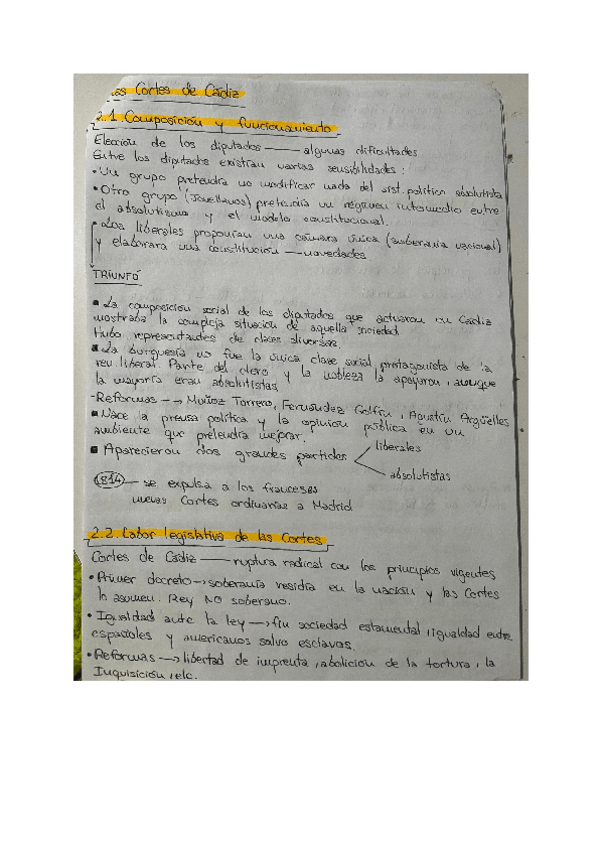 Cortes de Cádiz
2.1. Composición y funcionamiento
Elección de los diputados —— algunas dificultades
Entre los diputados existían varias sensibilidades:
• Un grupo pretendía no modificar nada del sist. político absolutista
• Otro grupo (Jovellanos) pretendía un régimen intermedio entre
el absolutismo y el modelo constitucional.
• Los liberales proponían una cámara única (soberanía nacional)
y elaborara una constitución —— novedades
TRIUNFÓ
▪ La composición social de los diputados que actuaron en Cádiz
mostraba la compleja situación de aquella sociedad
Hubo representantes de clases diversas.
▪ La burguesía no fue la única clase social protagonista de la
rev liberal. Parte del clero y la nobleza la apoyaron, aunque
la mayoría eran absolutistas
-Reformas —→ Muñoz Torrero, Fernández Golfín, Agustín Argüelles
▪ Nace la prensa política y la opinión pública en un
ambiente que pretendía mejorar.
▪ Aparecieron dos grandes partidos
liberales
absolutistas
1814 — se expulsa a los franceses
nuevas Cortes ordinarias a Madrid
2.2. Labor legislativa de las Cortes
Cortes de Cádiz —— ruptura radical con los principios vigentes
• Primer decreto → soberanía residía en la nación y las Cortes
la asumen. Rey NO soberano.
• Igualdad ante la ley —→ fin sociedad estamental, igualdad entre
españoles y americanos salvo esclavos.
• Reformas —→ libertad de imprenta, abolición de la tortura, la
Inquisición, etc.